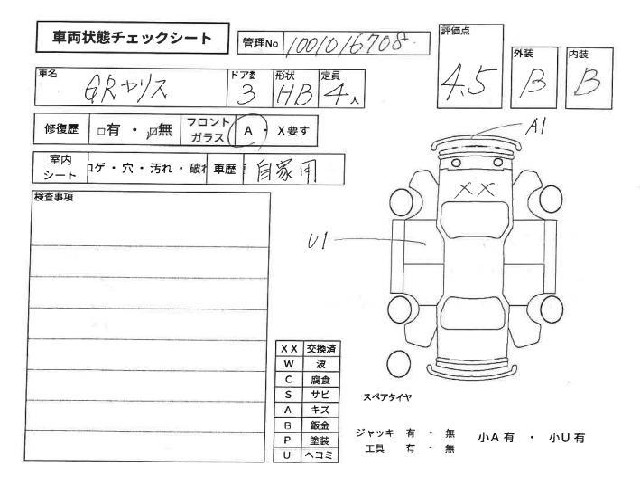 車両状態チェックシート
管理No 1001016708
評価点 4.5
外装 B
内装 B
車名 GRヤリス
ドア数 3
形状 HB
定員 4人
修復歴 □有 ・ ☑無
フロントガラス A ・ X要す
室内シート コゲ・穴・汚れ・破れ
車歴 自家用
検査事項
A1
XX
U1
XX 交換済
W 波
C 腐食
S サビ
A キズ
B 鈑金
P 塗装
U ヘコミ
スペアタイヤ
ジャッキ 有 ・ 無
工具 有 ・ 無
小A有 ・ 小U有